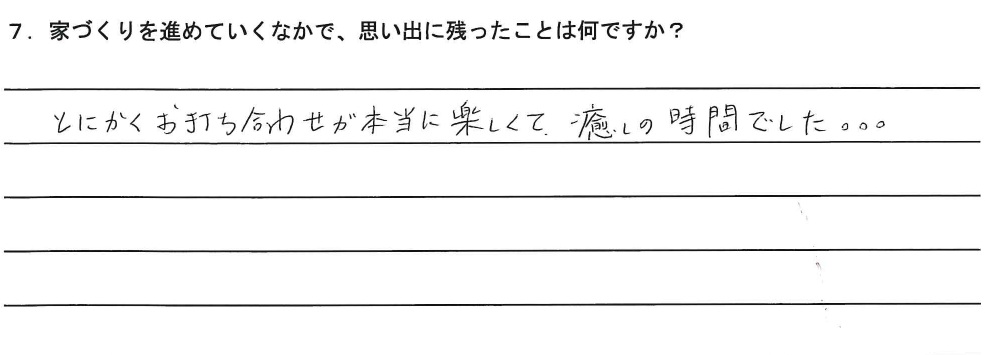 ７．家づくりを進めていくなかで、思い出に残ったことは何ですか？
とにかくお打ち合わせが本当に楽しくて、癒しの時間でした。。。